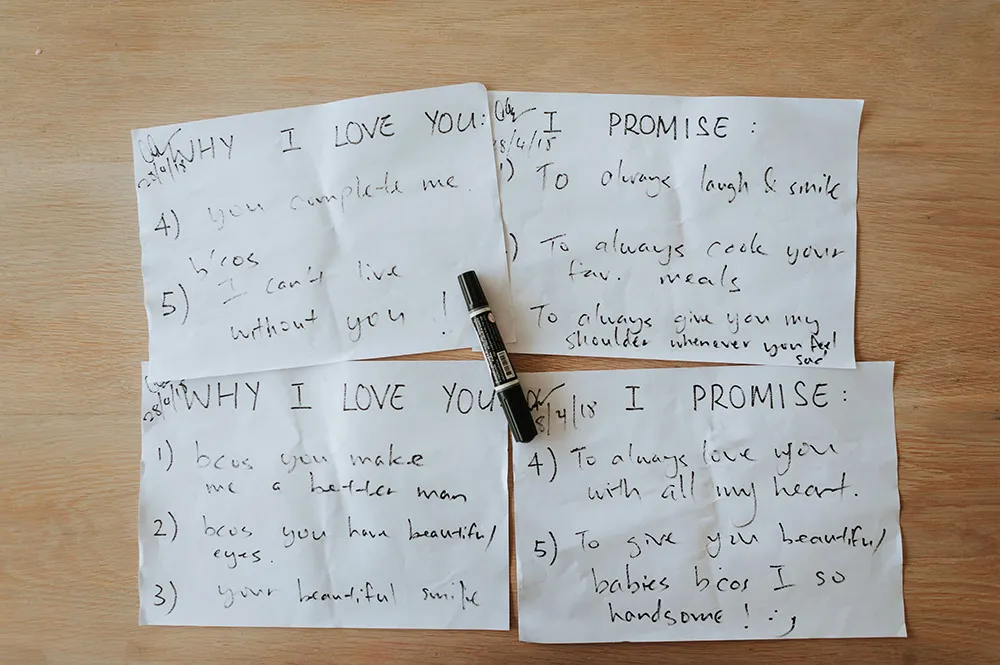 WHY I LOVE YOU:
4) you complete me.
b'cos
5) I can't live
without you !
I PROMISE :
1) To always laugh & smile
) To always cook your
fav. meals
To always give you my
shoulder whenever you feel
sad
WHY I LOVE YOU
28/4/18
1) bcos you make
me a better man
2) bcos you have beautiful
eyes.
3) your beautiful smile
I PROMISE :
8/4/18
4) To always love you
with all my heart.
5) To give you beautiful
babies b'cos I so
handsome ! :;